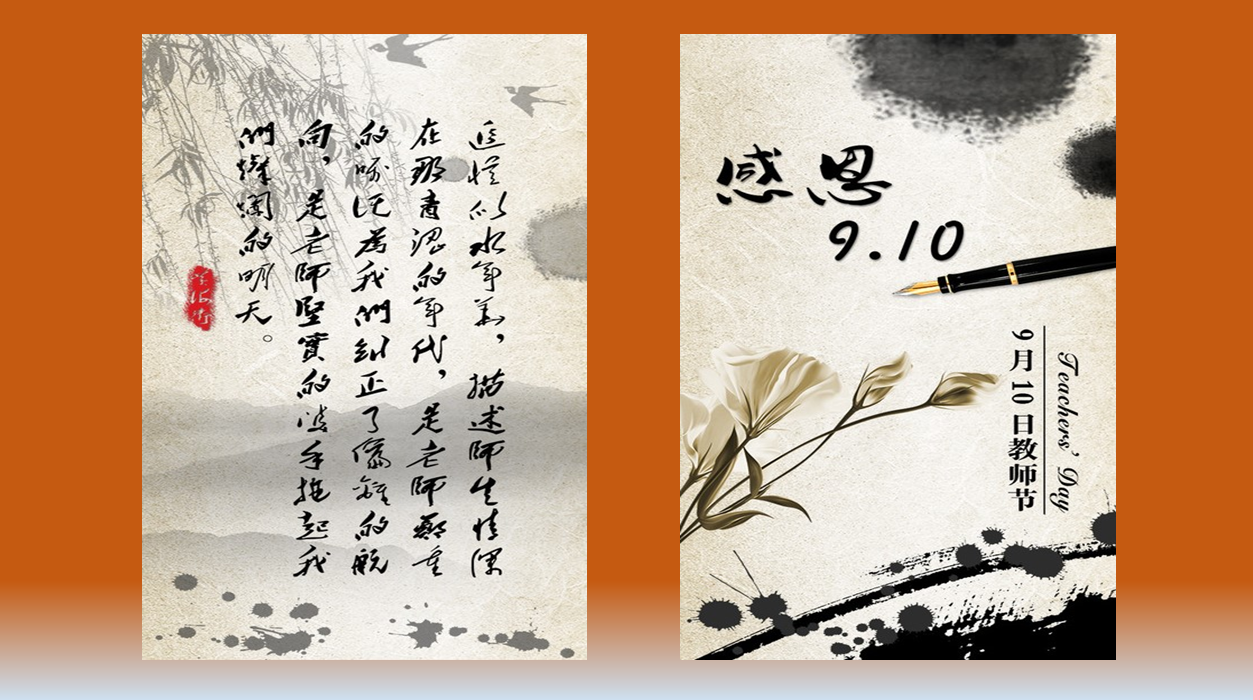 追憶似水年華,描述師生情深
在那青澀的年代,是老師鄭重
的囑託為我們糾正了偏離的航
向,是老師堅實的手拖起我
們燦爛的明天。
感恩
9.10
9月10日教师节
Teachers' Day